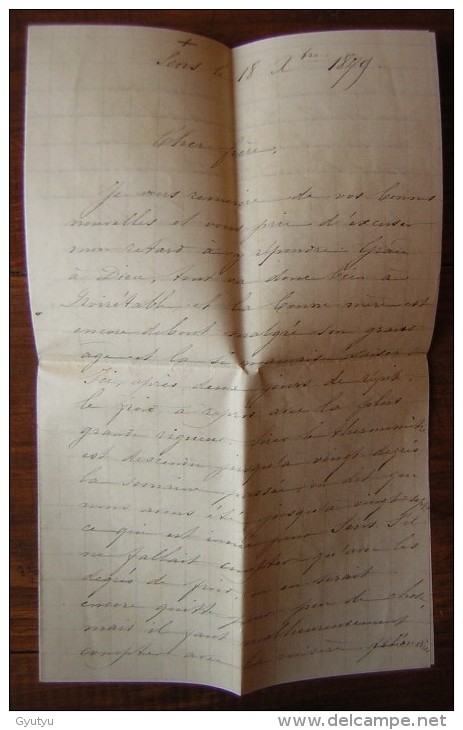 +
Sens le 18 Xbre 1879.
Cher frère,
Je vous remercie de vos bonnes
nouvelles et vous prie d'excuser
mon retard à y répondre. Grâce
à Dieu, tout va donc bien à
Noirétable et la bonne mère est
encore debout malgré son grand
âge et la si mauvaise saison.
Ici, après deux jours de répit
le froid a repris avec la plus
grande rigueur. le thermomètre
est descendu jusqu'à vingt degrés
la semaine passée, on dit que
nous avons été jusqu'à vingt
ce qui est pour Sens. S'il
ne fallait compter qu'avec les
degrés de froid, on en serait
encore quitte pour peu de chose,
mais il faut malheureusement
compter avec la misère
Gyutyu
delcampe.net